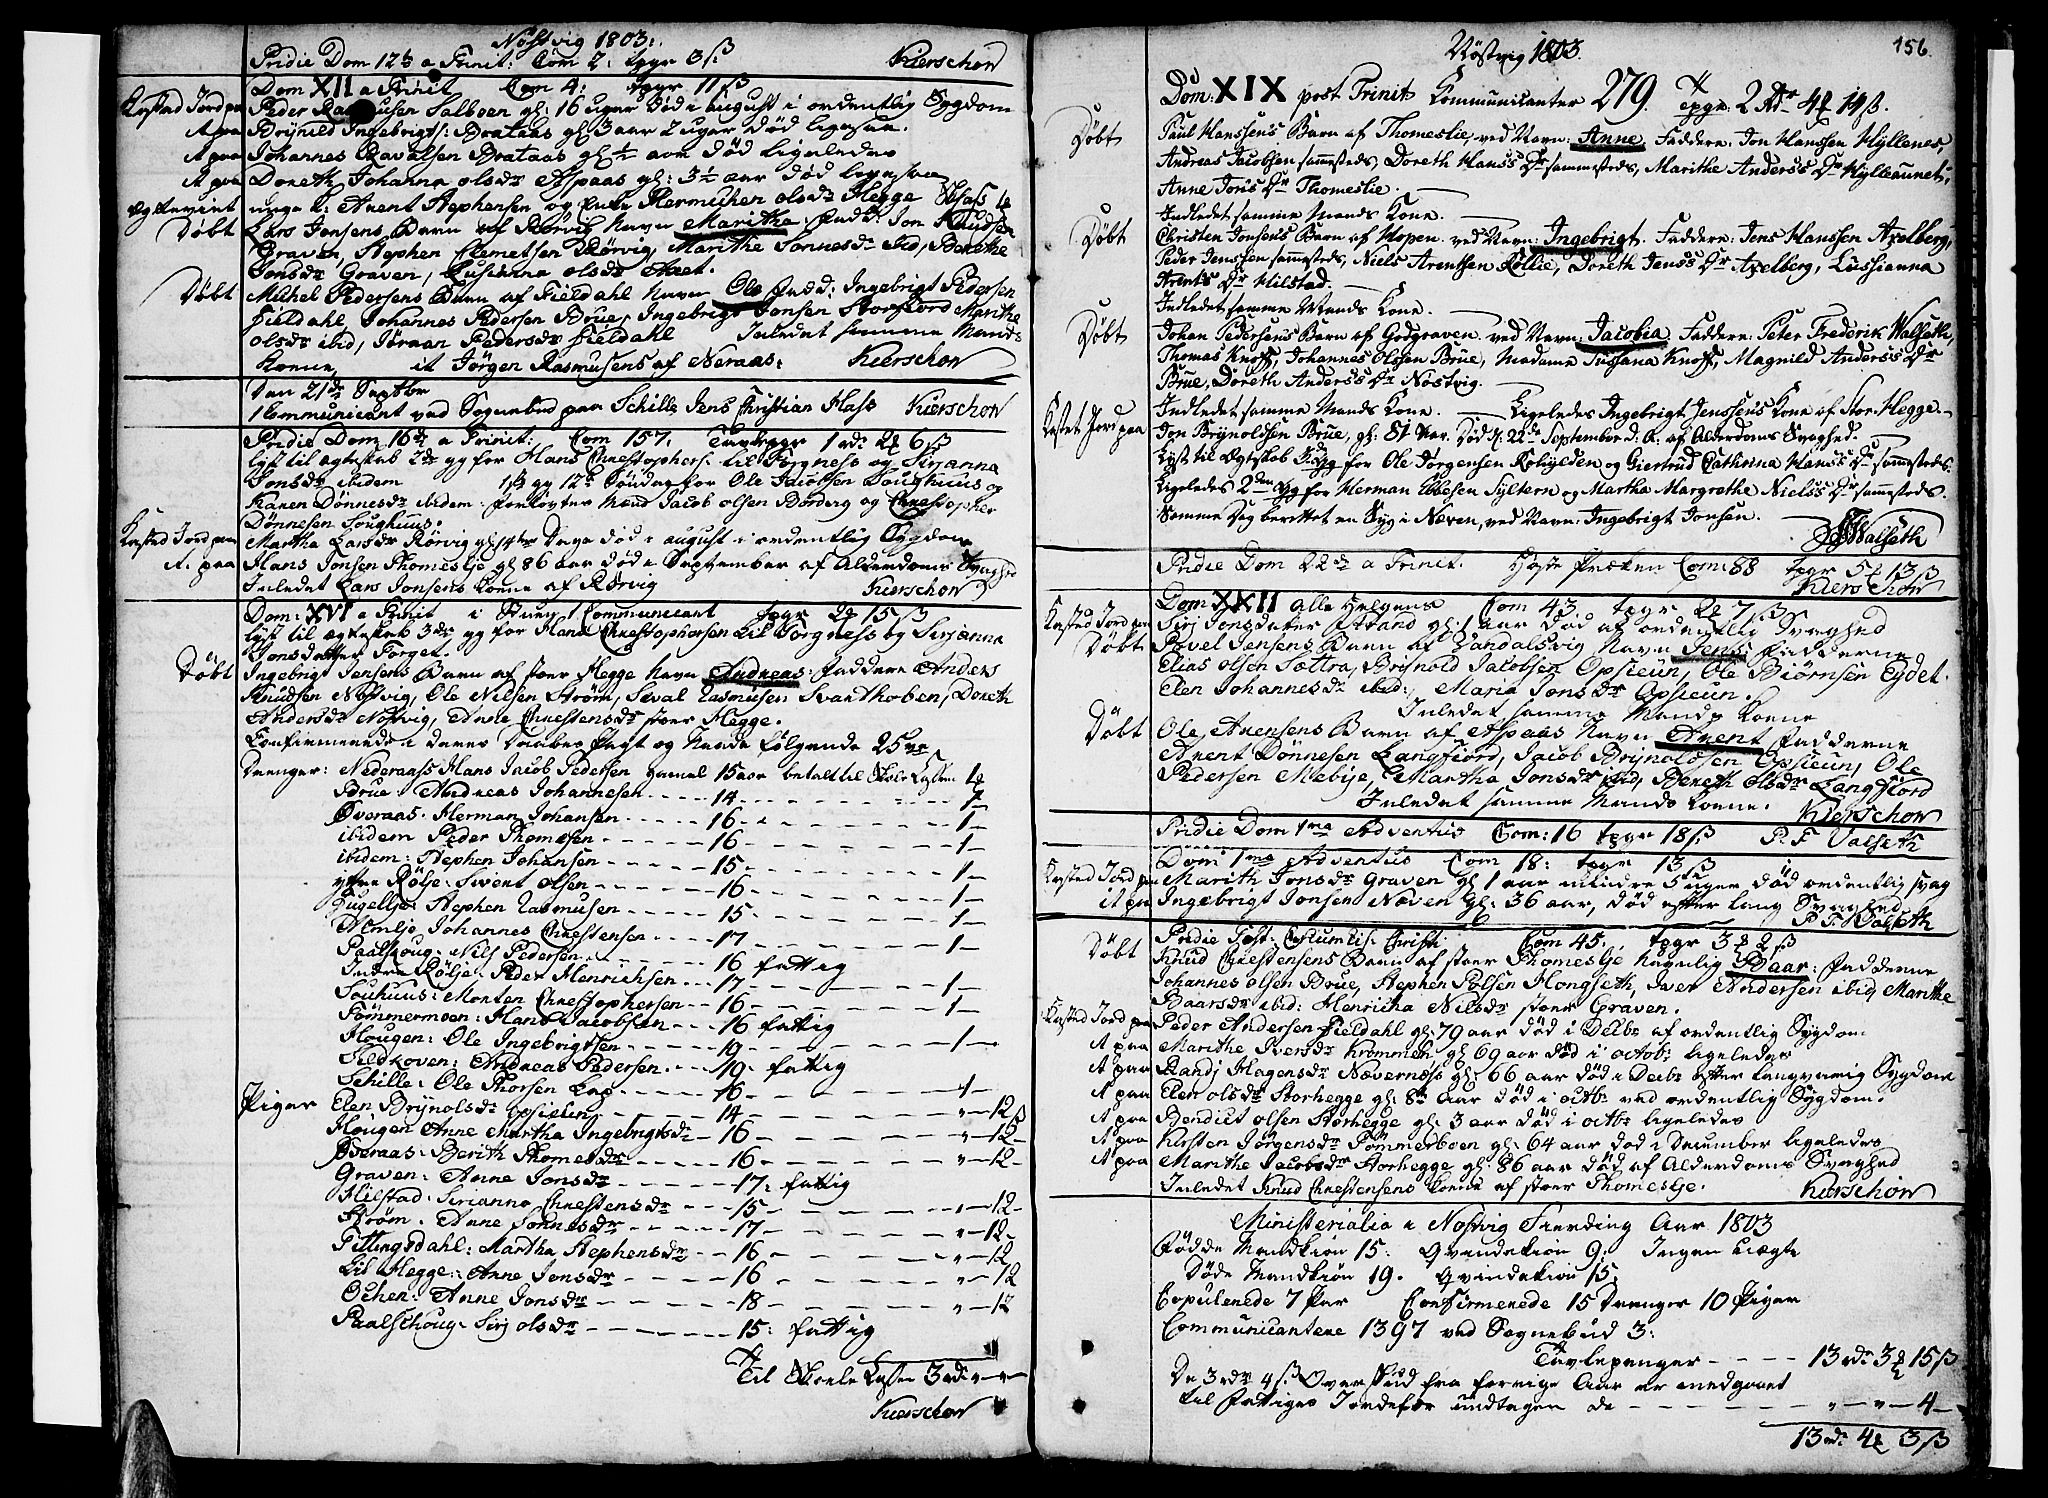 Nøstvig 1803:
Pridie Dom 12te a Trinit: Com 2: tpgr 3ß Kierschow
Dom XII a Trinit Com 4: tpgr 11ß
Kasted Jord paa Peder Salboen gl: 16 uger død i August i ordentlig Sygdom
It paa Brynild Ingebrigts: Brataas gl 3 aar 2 uger død ligesaa.
It paa Johannes Ravalsen Brataas gl ½ aar død ligeledes
It paa Doreth Johanna olsdr Aspaas gl: 3½ aar død ligesaa
Arent Stephensen og Enke olsdr Hegge
Døbt Lars Jonsens Barn af Rørvig Navn Maritha. Fadd: Jon Knudsen
Graven, Stephen Clemetsen Rørvig, Marithe Tønnesdr ibid, Berethe
Jonsdr Graven, Lusianna olsdr Aaet.
Døbt Michel Pedersens Barn af Fieldahl Navn Ole Fadd: Ingebrigt Pedersen
Fieldahl, Johannes Pedersen Brue, Ingebrigt Jonsen Storfiord Marithe
olsdr ibid, Jøraan Pedersdr Fieldahl Inledet samme Mands
Koene, it Jørgen Rasmusens af Neraas: Kierschow
Den 21de Septbr
1 Communicant ved Sognebud paa Schille Jens Christian Hass Kierschow
Pridie Dom 16de a Trinit: Com 157. Tavlepgr 1 rdr 2 6ß
lyst til ægteskab 2de gg for Hans Christophers: til Forgness og Sirianna
Jonsdr ibidem 1ste gg 12te Søndag for Ole Jacobsen Soughuus og
Karen Dønnesdr ibidem. forlovtes Mænd Jacob olsen Bordervig og Christopher
Dønnesen Soughuus.
Kasted Jord paa Martha Larsdr Rørvig gl 14ten Dage død i august i ordentlig Sygdom
It. paa Hans Jonsen Thomeslie gl 86 aar død i September af Alderdoms Svaghed
Inledet Lars Jonsens Koene af Rørvig Kierschow
Dom: XVI a Trinit 1 Stuer Communicant tpgr 2 15ß
lyst til ægteskab 3die gg for Hans Christophersen til Forgness og Sirianna
Jonsdatter Forget.
Døbt Ingebrigt Jensens Barn af stoer Hegge Navn Andreas. Faddere Anders
Knudsen Nostvig, Ole Nilsen Strøm, Sival Rasmusen Svarthoben, Doreth
Andersdr Nostvig, Anne Christensdr stoer Hegge.
Confirmerede i deres Daabes Pagt og Naade følgende 25ve
Drenger: Nederaass Hans Jacob Pedersen gamel 15 aar betalt til Skole Casen 1
Brue: Andreas Johannesen ---- 14 - - - - 1
Øveraas: Herman Johansen --- 16 - - - - 1 -
ibidem Peder Thomesen --- 16 - - - - 1 -
ibidem: Stephen Johansen --- 15 - - - - 1 -
yttre Rølje: Sivert olsen --- 16 - - - - 1 -
Fugellie: Stephen Rasmusen --- 15 - - - - 1 -
Nemljo Johannes Christensen --- 17 - - - - 1 -
Paalskoug: Nils Pedersen --- 16 fattig
Indre Rølje: Peder Henrichsen --- 17 - - - - 1 -
Souhuus: Morten Christophersen -- 16 - - - - 1 -
Tømmermoen: Hans Jacobsen --- 16 fattig
Hougen: Ole Ingebrigtsen --- 19 - - - - 1 -
Sildkoven: Andreas Pedersen --- 19 fattig
Schille: Ole Thorsen Lap --- 16 - - - - 1 -
Piger Elen Brynolsdr opsieling --- 14 - - - - " - 12ß
Hougen Anne Martha Ingebrigtsdr - 16 - - - - " - 12 -
Øveraas: Berith Thomesdr --- 16 - - - - " - 12 -
Graven: Anne Jonsdr --- 17: fattig
Hilstad: Sirianna Christensdr --- 15 - - - - " - 12 -
Strøm: Anne Tønnesdr --- 17 - - - - " - 12 -
Tillingsdahl: Martha Stephensdr -- 16 - - - - " - 12
Lil Hegge: Anne Jonsdr --- 16 - - - - " - 12
Ochen: Anne Jonsdr --- 18 - - - - " - 12
Paalschoug. Sirj olsdr --- 15: fattig
Til Skole Casen 3 rdr " - " -
Kierschow
Nöstvig 1803.
156.
Dom: XIX post Trinit: Kommunicanter 279. Tpgr: 2 Rdr 4 14ß.
Döbt Paul Hanssens Barn af Thomeslie, ved Navn: Anne. Faddere: Jon Hanssen Hyllenes,
Andreas Jacobsen sammesteds, Doreth Hanss Dr sammesteds, Marithe Anderss Dr Hylleaunet,
Anne Jons Dr Thomeslie.
Indledet samme Mands Kone.
Döbt Christen Jonsens Barn af Hopen. ved Navn: Ingebrigt. Faddere: Jens Hanssen Axelberg,
Peder Jenssen sammesteds, Niels Arentsen Röllie, Doreth Jenss Dr Axelberg, Lussianna
Arents Dr Hilstad.
Indledet samme Mands Kone.
Döbt Johan Pedersens Barn af Godgraven ved Navn: Jacobia. Faddere: Peter Frederik Walseth,
Thomas Knoff, Johannes Olsen Brüe, Madame Sussana Knoff, Magnild Anderss Dr
Brüe, Doreth Anderss Dr Nöstvig.
Indledet samme Mands Kone. — Ligeledes Ingebrigt Jenssens Kone af Stor Hegge.
Kastet Jord paa Jon Brynoldsen Brüe, gl: 81 Aar. Död d: 22de September d: A: af Alderdoms Svaghed.
Lyst til Ægteskab 3die Gg for Ole Jörgensen Rohylden og Giertrud Cathrina Hanss Dr sammesteds.
Ligeledes 2den Gg for Herman Ebbesen Syltern og Martha Margrethe Nielss Dr sammesteds.
Samme Dag berettet en Syg i Næven, ved Navn: Ingebrigt Jonsen.
Walseth
Pridie Dom 22de a Trinit. Høste Præken Com: 88 tpgr 5 13ß
Kierschow
Dom XXII alle Helgens Com 43. tpgr 2 7ß
Kasted Jord paa Sirj Jensdatter Strand gl: 1 aar død af ordentlig Svaghed
Døbt Povel Jensens Barn af Vandalsvig Navn Jens. Fadderne
Elias olsen Sættra, Brynold Jacobsen Opsieun, Ole Biørnsen Eydet.
Elen Johannesdr ibid:, Maria Jonsdr Opsieun.
Inledet samme Mands Koene
Døbt Ole Arensens Barn af Aspaas Navn Arent Fadderne
Arent Dønnesen Langfiord, Jacob Brynoldsen Opsieun, Ole
Pedersen Mebye, Martha Jonsdr ibid, Bereth olsdr Langfiord
Inledet samme Mands Koene. Kierschow
Pridie Dom 1ma Adventus Com: 16 tpgr 18ß P: F Valseth
Dom 1ma Adventus Com 18: tpgr 13ß
Kasted Jord paa Marith Jonsdr Graven gl 1 aar mindre 5 uger død ordentlig svag
it paa Ingebrigt Jonsen Næven gl: 36 aar, død efter lang Svaghed
P. F. Walseth
Pridie Fest: Christi Com 45. tpgr 3 2ß
Døbt Knud Christensens Barn af stoer Thomeslje Navnlig Baar. Fadderne
Johannes olsen Brue, Stephen Polsen Hongseth, Iver Andersen ibid, Marithe
Baarsdr ibid: Henricha Nilsdr stoer Graven.
Kasted Jord paa Peder Andersen Fieldahl gl: 79 aar død i Decbr af ordentlig Sygdom
It paa Marithe Iversdr Krommen gl 69 aar død i octob: ligeledes
It paa Randj Hagensdr Nævernæss gl 66 aar død i Decbr efter langvarig Sygdom
It paa Elen olsdr Storhegge gl: 8te Aar død i octbr ved ordentlig Sygdom.
It paa Bendict olsen Storhegge gl: 3 aar død i octbr ligeledes
It paa Kirsten Jørgensdr Tømmerboen gl: 64 aar død i December ligeledes
It paa Marithe Jacobsdr Storhegge gl: 86 aar død af Alderdoms Svaghed
Inledet Knud Christensens Koene af stoer Thomeslje. Kierschow
Ministerialia i Nostvig Fierding Aar 1803
Fødde Mandkiøn 15: Qvindekiøn 9: Ingen uægte
Døde Mandkiøn 19. Qvindekiøn 15.
Copulerede 7 Par Confirmerede 15 Drenger 10 Piger
Communicantere 1397 ved Sognebud 3:
Tavlepenger ---- 13 rdr 3 15ß
De 3 rdr 4ß Overskud fra forrige Aar er medgaaet
til Fattiges Jordefær undtagen de ---- " - " - 4 -
13 rdr 4 3ß